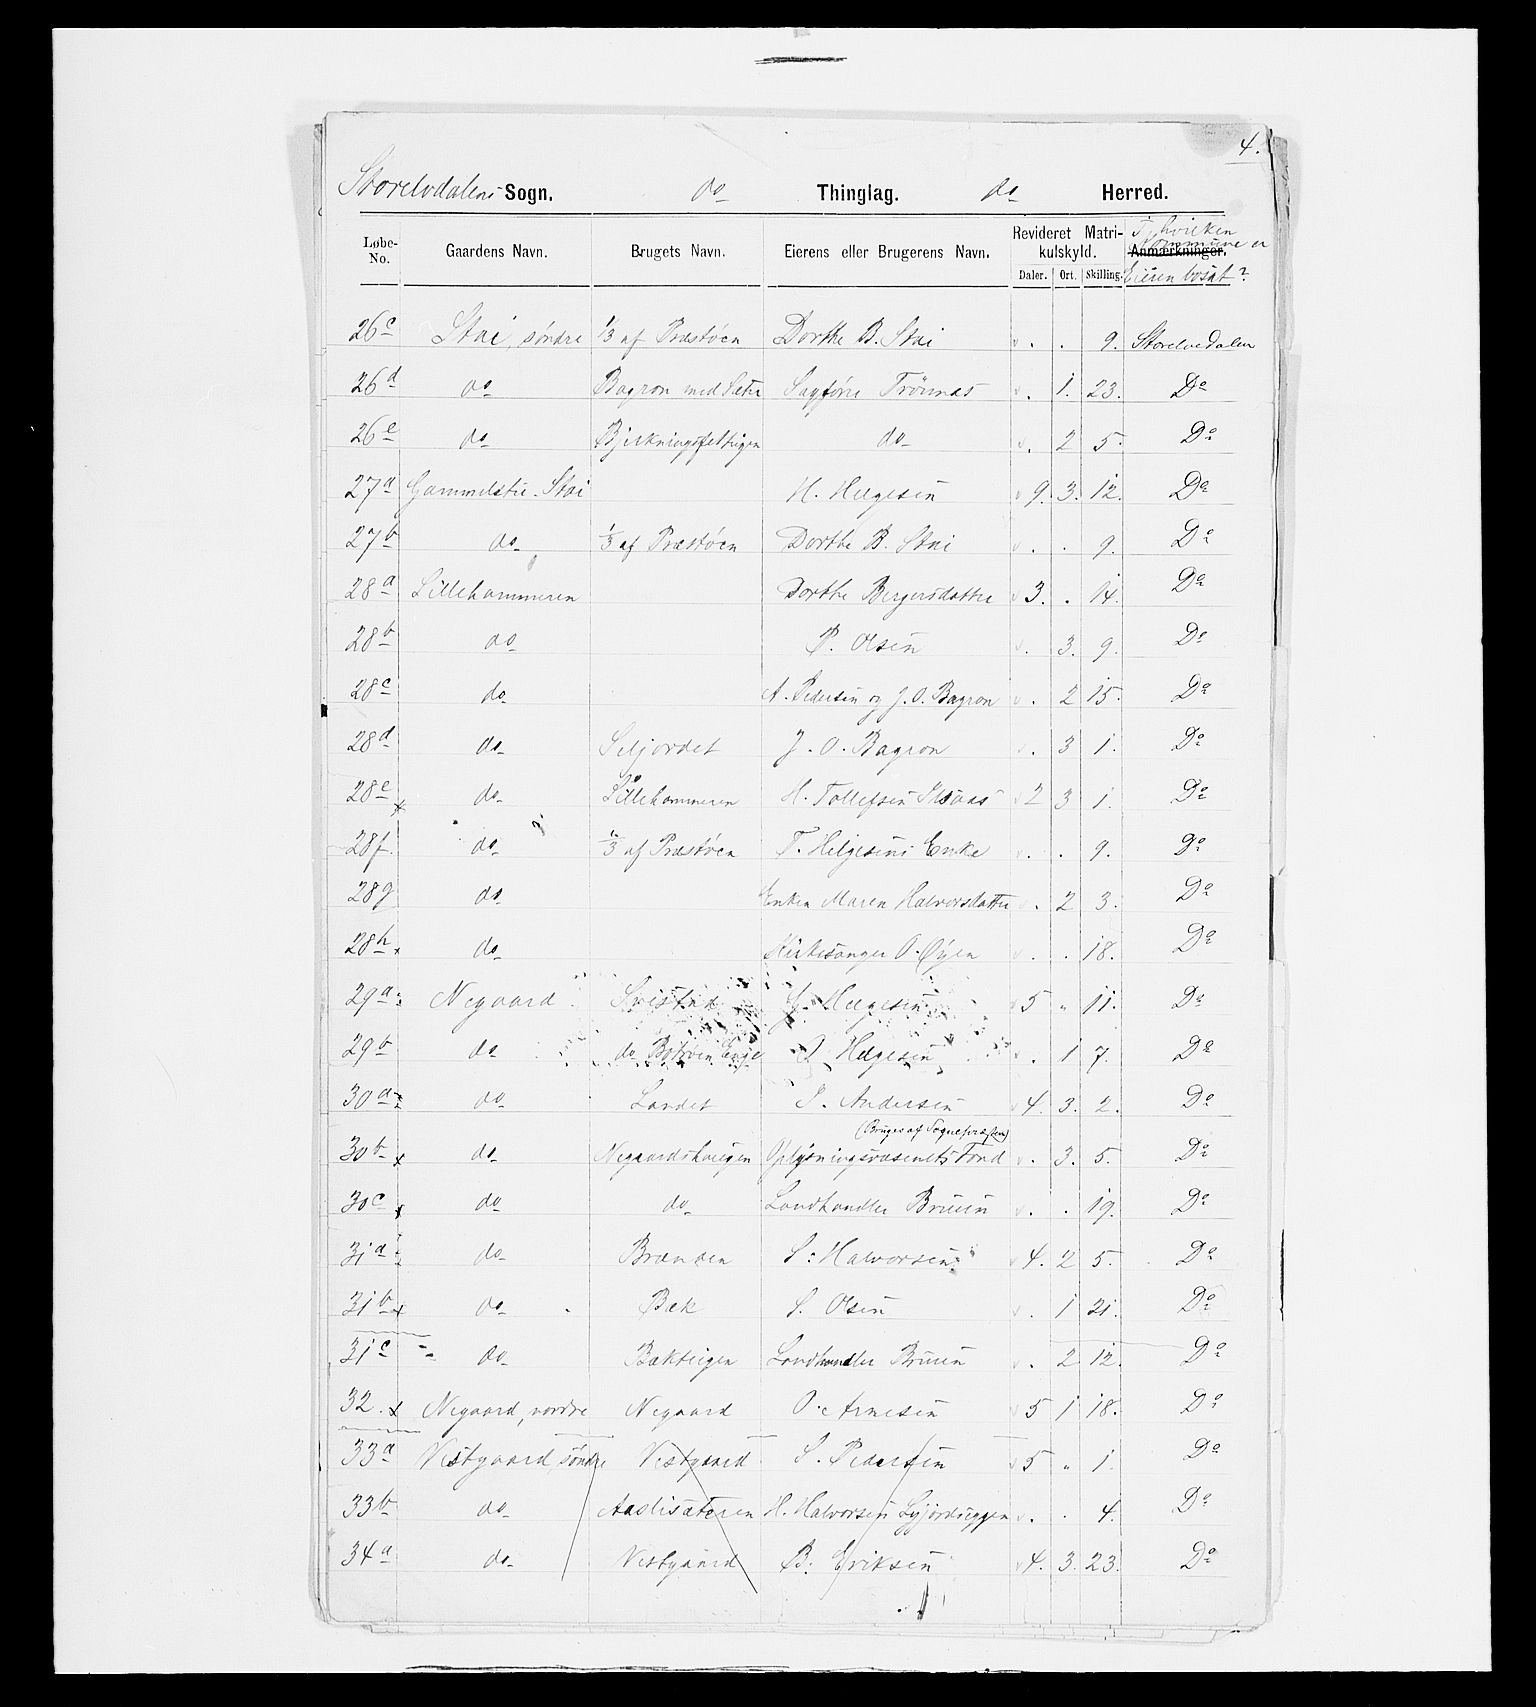 4.
Storelvdalens Sogn. do Thinglag. do Herred.
Løbe-No. Gaardens Navn. Brugets Navn. Eierens eller Brugerens Navn. Revideret Matrikulskyld. Daler. Ort. Skilling. Anmærkninger. I hvilken Kommune er Eieren bosat?
26c Stai søndre 1/3 af Præstøen Dorthe B. Stai . . 9. Storelvedalen
26d do Bagron med Sæter Sagfører Trønnæs . 1. 23. Do
26e do Bjerkningsfetteigen do . 2 5. Do
27a Gammelstu-Stai H. Helgesen 9. 3. 12. Do
27b do 1/3 af Præstøen Dorthe B. Stai . . 9. Do
28a Lillehammeren Dorthe Bergersdatter 3. . 14. Do
28b do P. Olsen . 3. 9. Do
28c do A. Pedersen og J. O. Bagron . 2 15. Do
28d do Seljordet J. O. Bagron . 3 1. Do
28e x do Lillehammeren H. Tollefsen 2 3 1. Do
28f. do 1/3 af Præstøen T. Helgesens Enke . . 9. Do
28g do Enken Maren Halvorsdatter . 2 3. Do
28h x do Kirkesanger O. Øyen . . 18. Do
29a Negaard Sristad Helgesen 5 " 11. Do
29b do do Enge Helgesen . 1 7. Do
30a do Landet P. Andersen 4. 3. 2. Do
(Bruges af Sognepræsten)
30b x do Negaardshaugen Oplysningsvæsenets Fond . 3. 5. Do
30c x do do Landhandler Bruun . . 19. Do
31a do Brænden S: Halvorsen 4. 2 5. Do
31b x do Bæk S. Olsen . 1 21. Do
31c do Bækteigen Landhandler Bruun . 2 12. Do
32. x Negaard, nordre Negaard O. Arnesen 5 1 18. Do
33a Vestgaard, søndre Vestgaard S. Pedersen 5 " 1. Do
33b do Aaslisæteren H. Halvorsen . . 4. Do
34a do Vestgaard B: Eriksen 4. 3. 23. Do